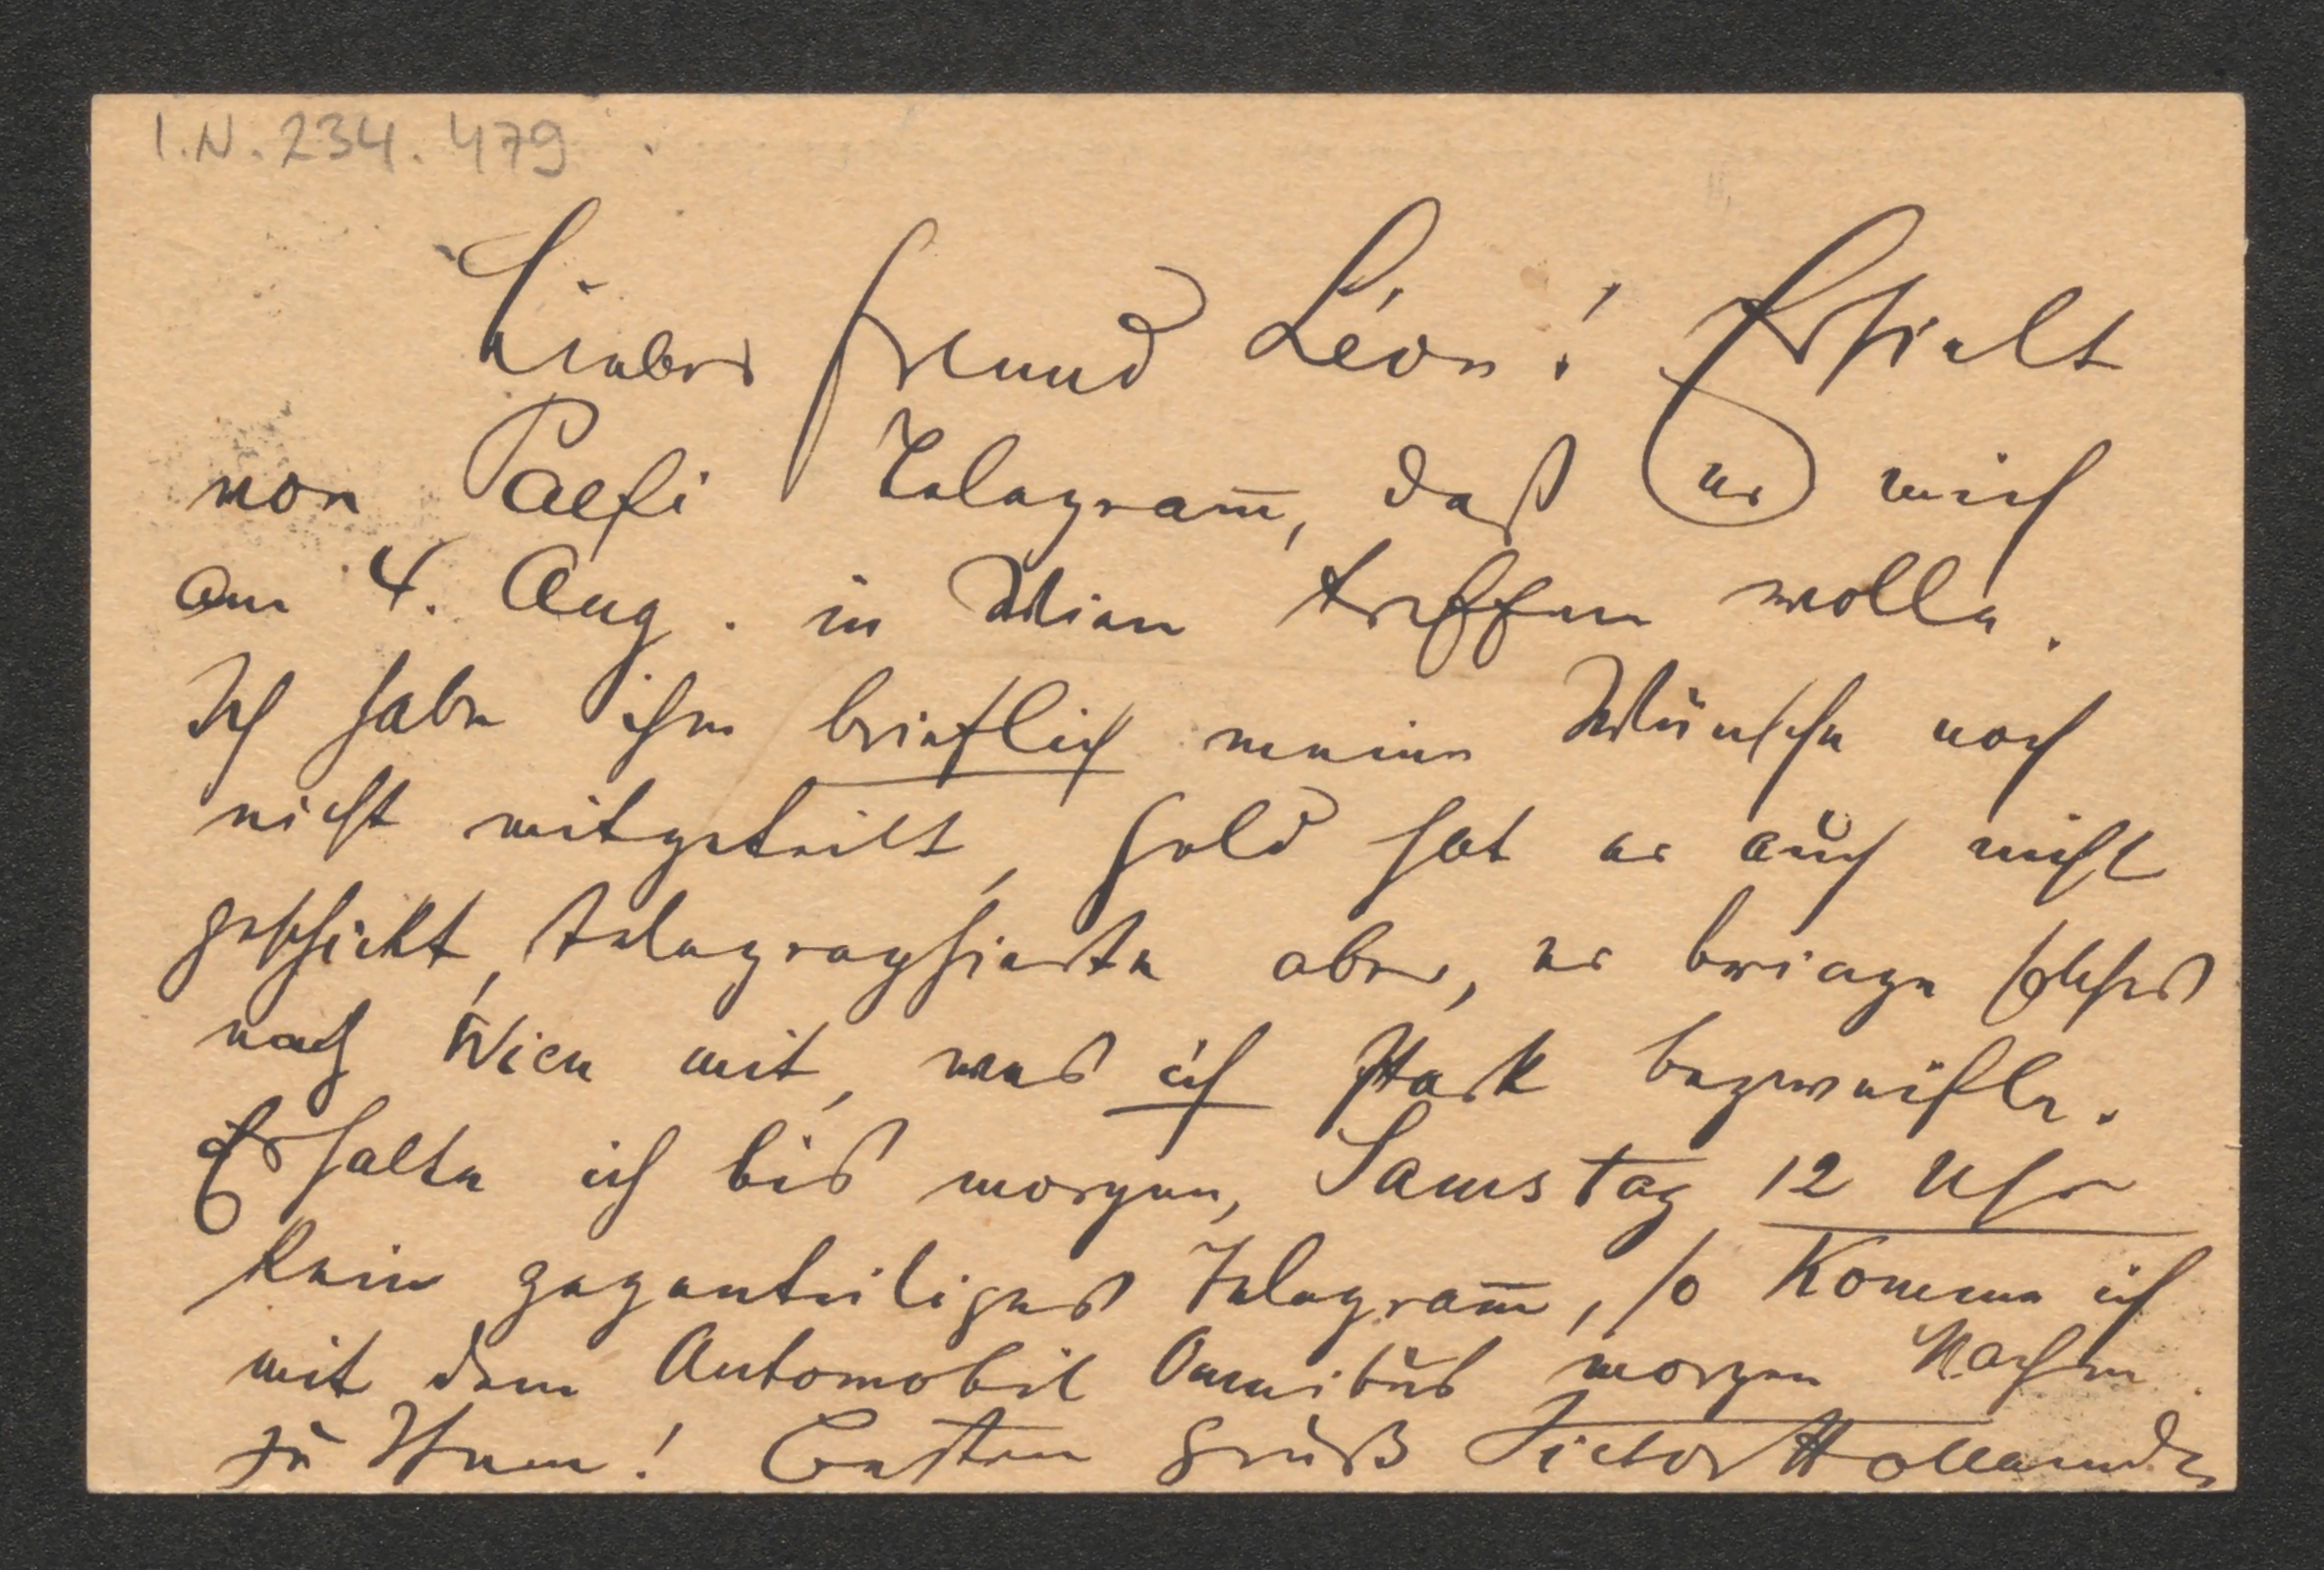 I.N. 234.479
Lieber Freund Léon! Erhielt
von Palfi Telegram̅, daß er mich
am 4. Aug. in Wien treffen wolle.
Ich habe ihm brieflich meine Wünsche noch
nicht mitgeteilt, Geld hat er auch nicht
geschickt, telegraphierte aber, er bringe solches
nach Wien mit, was ich stark bezweifle.
Erhalte ich bis morgen, Samstag 12 Uhr
kein gegenteiliges Telegram̅, so komme ich
mit dem Automobil Omnibus morgen Nachm.
zu Ihnen! Besten Gruß Victor Hollaender